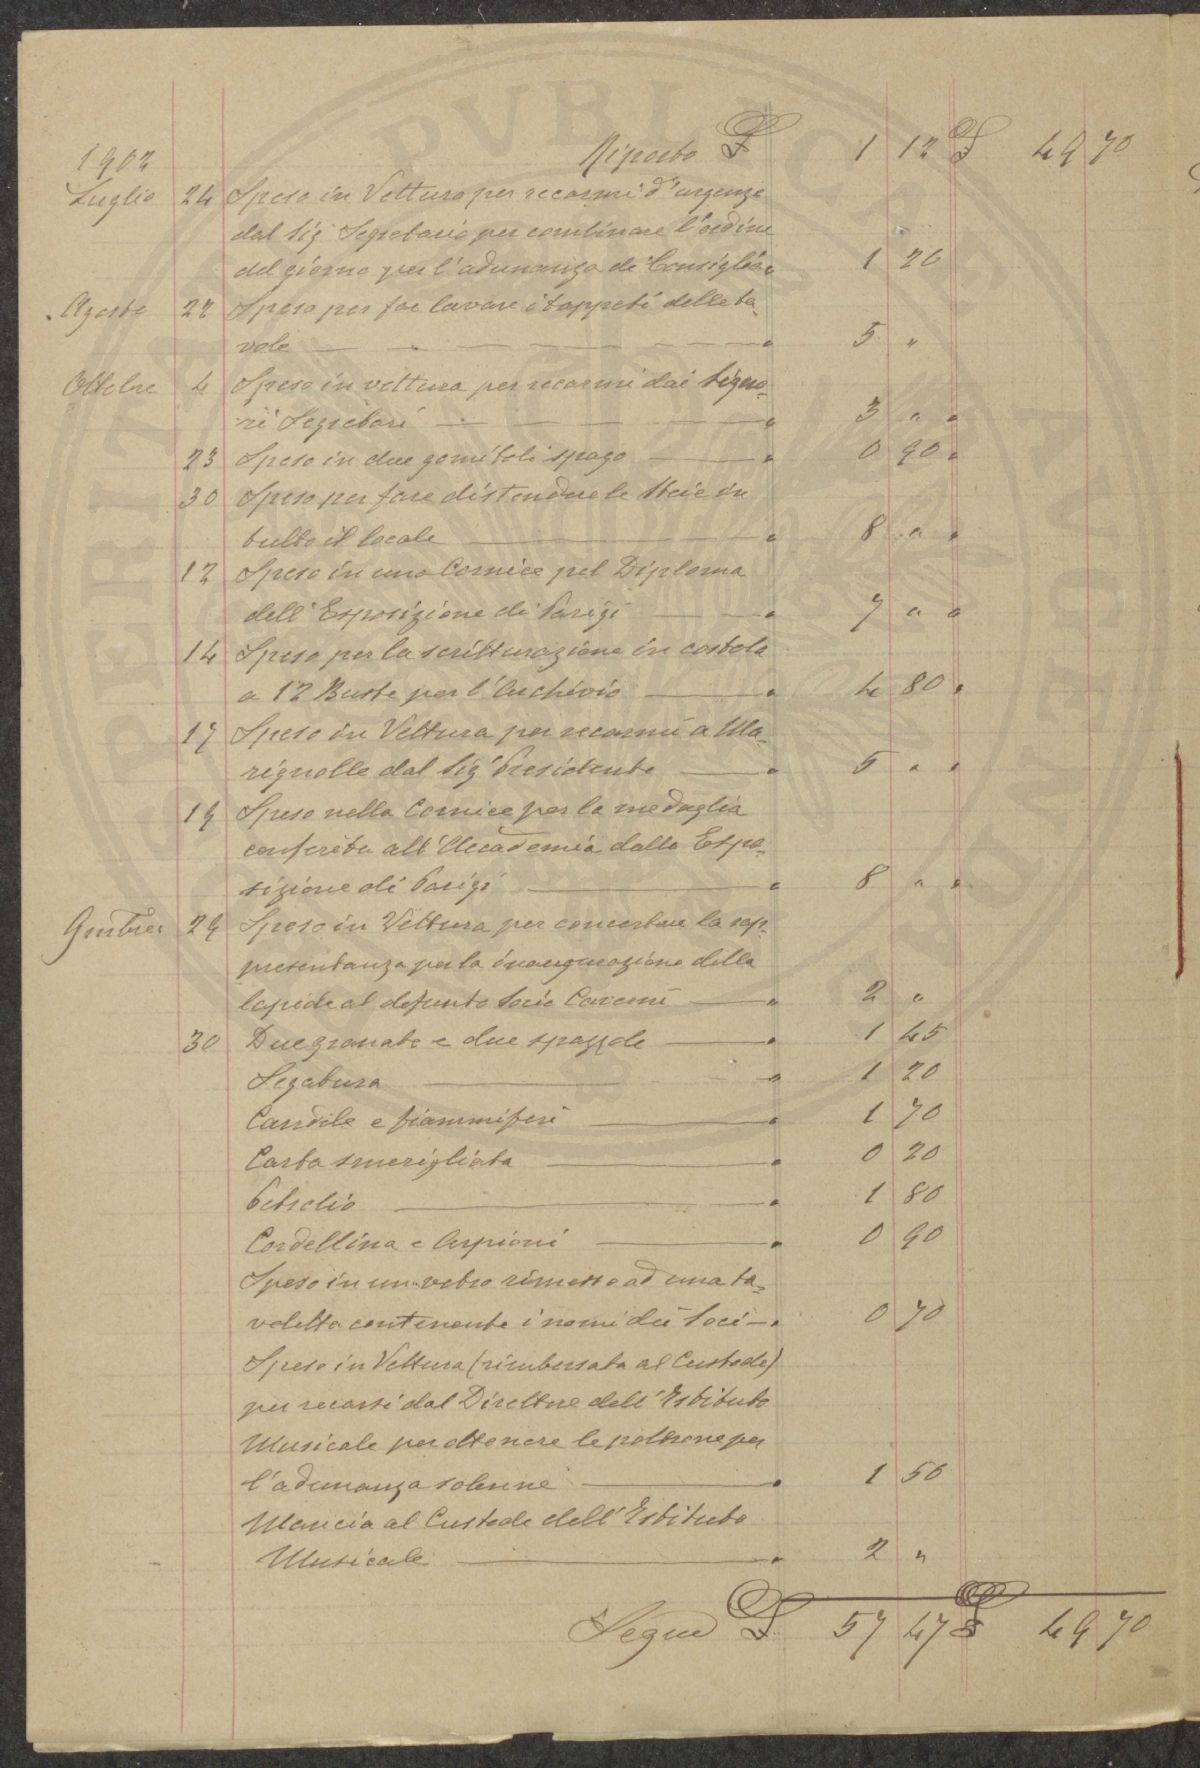 Riporto £ 1 12 £ 49 70
1902
Luglio 24 Speso in Vettura per recarmi d'urgenza
dal Sig Segretario per combinare l'ordine
del giorno per l'adunanza di Consiglio " 1 20
Agosto 22 Speso per far lavare i tappeti delle ta-
vole " 5 "
Ottobre 4 Speso in vettura per recarmi dai Signo-
ri Segretari " 3 " "
23 Speso in due gomitoli spago " 0 90 "
30 Speso per fare distendere le stoie in
tutto il locale " 8 " "
12 Speso in una Cornice pel Diploma
dell'Esposizione di Parigi " 7 " "
14 Speso per la scritturazione in costola
a 12 Buste per l'Archivio " 4 80 "
17 Speso in Vettura per recarmi a Ma-
rignolle dal Sig Presidente " 5 " "
19 Speso nella Cornice per la medaglia
conferita all'Accademia dalla Espo-
sizione di Parigi " 8 " "
9mbre 29 Speso in Vettura per concertare la rap-
presentanza per la inaugurazione della
lapide al defunto Socio " 2 "
30 Due granate e due spazzole " 1 45
Segatura " 1 20
Candele e fiammiferi " 1 70
Carta smerigliata " 0 20
Petrolio " 1 80
Cordellina e Arpioni " 0 90
Speso in un vetro rimesso ad una ta-
voletta contenente i nomi dei Soci " 0 70
Speso in Vettura (rimborsata al Custode)
per recarsi dal Direttore dell'Istituto
Musicale per ottenere le poltrone per
l'adunanza solenne " 1 50
Mancia al Custode dell'Istituto
Musicale " 2 "
Segue £ 57 47 £ 49 70